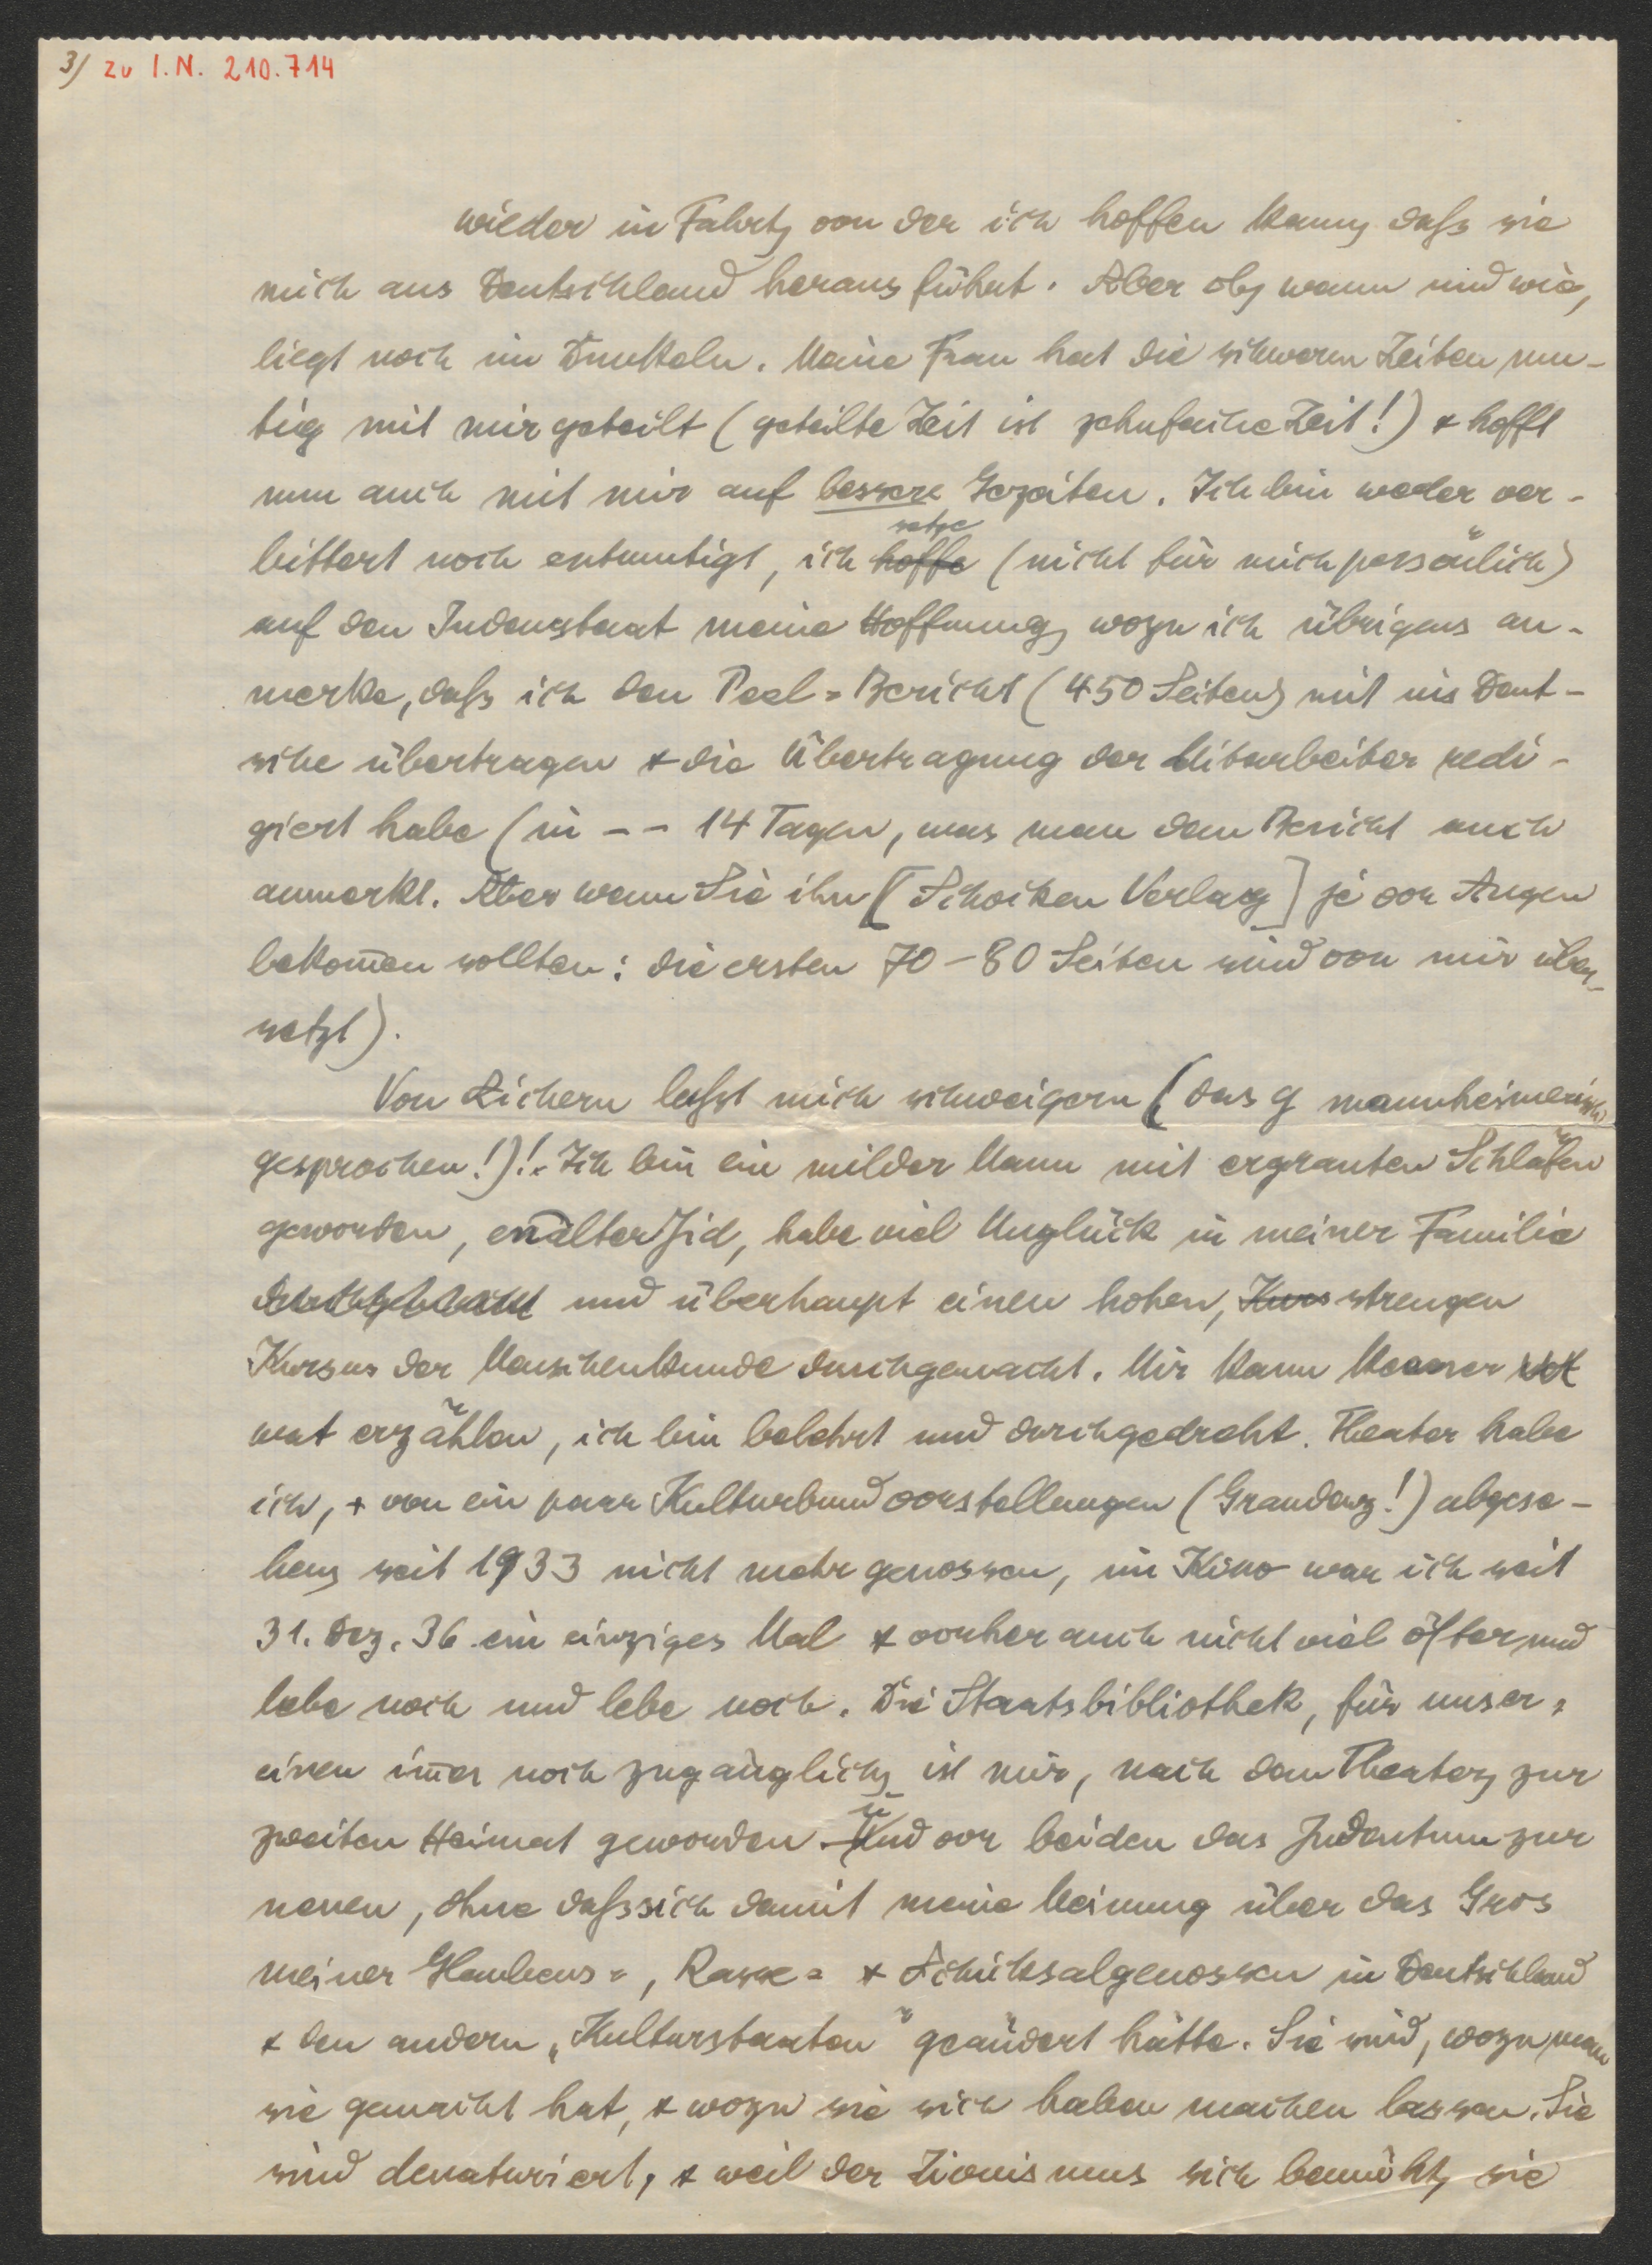 3/ zu I.N. 210.714
wieder in Fahrt, von der ich hoffen kann, dass sie
mich aus Deutschland heraus führt. Aber ob, wann und wie,
liegt noch im Dunkeln. Meine Frau hat die schweren Zeiten mu-
tig mit mir geteilt (geteilte Zeit ist zehnfache Zeit!) & hofft
nun auch mit mir auf bessere Gezeiten. Ich bin weder ver-
setze
bittert noch entmutigt, ich hoffe (nicht für mich persönlich)
auf den Judenstaat meine Hoffnung, wozu ich übrigens an-
merke, dass ich den Peel-Bericht (450 Seiten) mit ins Deut-
sche übertragen & die Übertragung der Mitarbeiter redi-
giert habe (in -- 14 Tagen, was man dem Bericht auch
anmerkt. Aber wenn Sie ihn [Schocken Verlag] je vor Augen
bekom̄en sollten: die ersten 70-80 Seiten sind von mir über-
setzt).
Von Büchern lasst mich schweigern (das g mannheimerisch
gesprochen!)! Ich bin ein milder Mann mit ergrauten Schläfen
geworden, en alter Jid, habe viel Unglück in meiner Familie
und überhaupt einen hohen, Kurs strengen
Kursus der Menschenkunde durchgemacht. Mir kann keener
wat erzählen, ich bin belehrt und durchgedreht. Theater habe
ich, & von ein paar Kulturbundvorstellungen (Graudenz!) abgese-
hen, seit 1933 nicht mehr genossen, im Kino war ich seit
31. Dez. 36 ein einziges Mal & vorher auch nicht viel öfter, und
lebe noch und lebe noch. Die Staatsbibliothek, für unser-
einen im̄er noch zugänglich, ist mir, nach dem Theater, zur
zweiten Heimat geworden. Und vor beiden das Judentum zur
neuen, ohne dass sich damit meine Meinung über das Gros
meiner Glaubens-, Rasse- & Schicksalgenossen in Deutschland
& den andern „Kulturstaaten" geändert hätte. Sie sind, wozu man
sie gemacht hat, & wozu sie sich haben machen lassen. Sie
sind denaturiert, & weil der Zionismus sich bemüht, sie